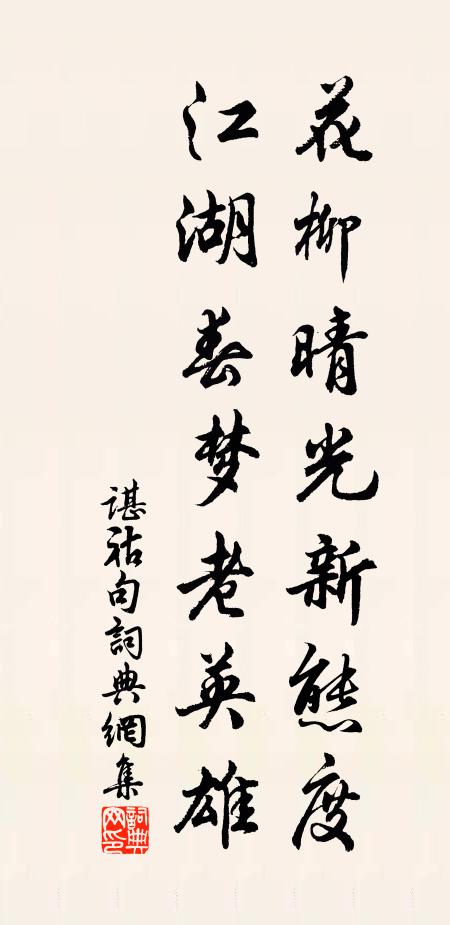 花柳晴光新態度
江湖春梦老英雄
谌祜句詞典網集
詞典网印